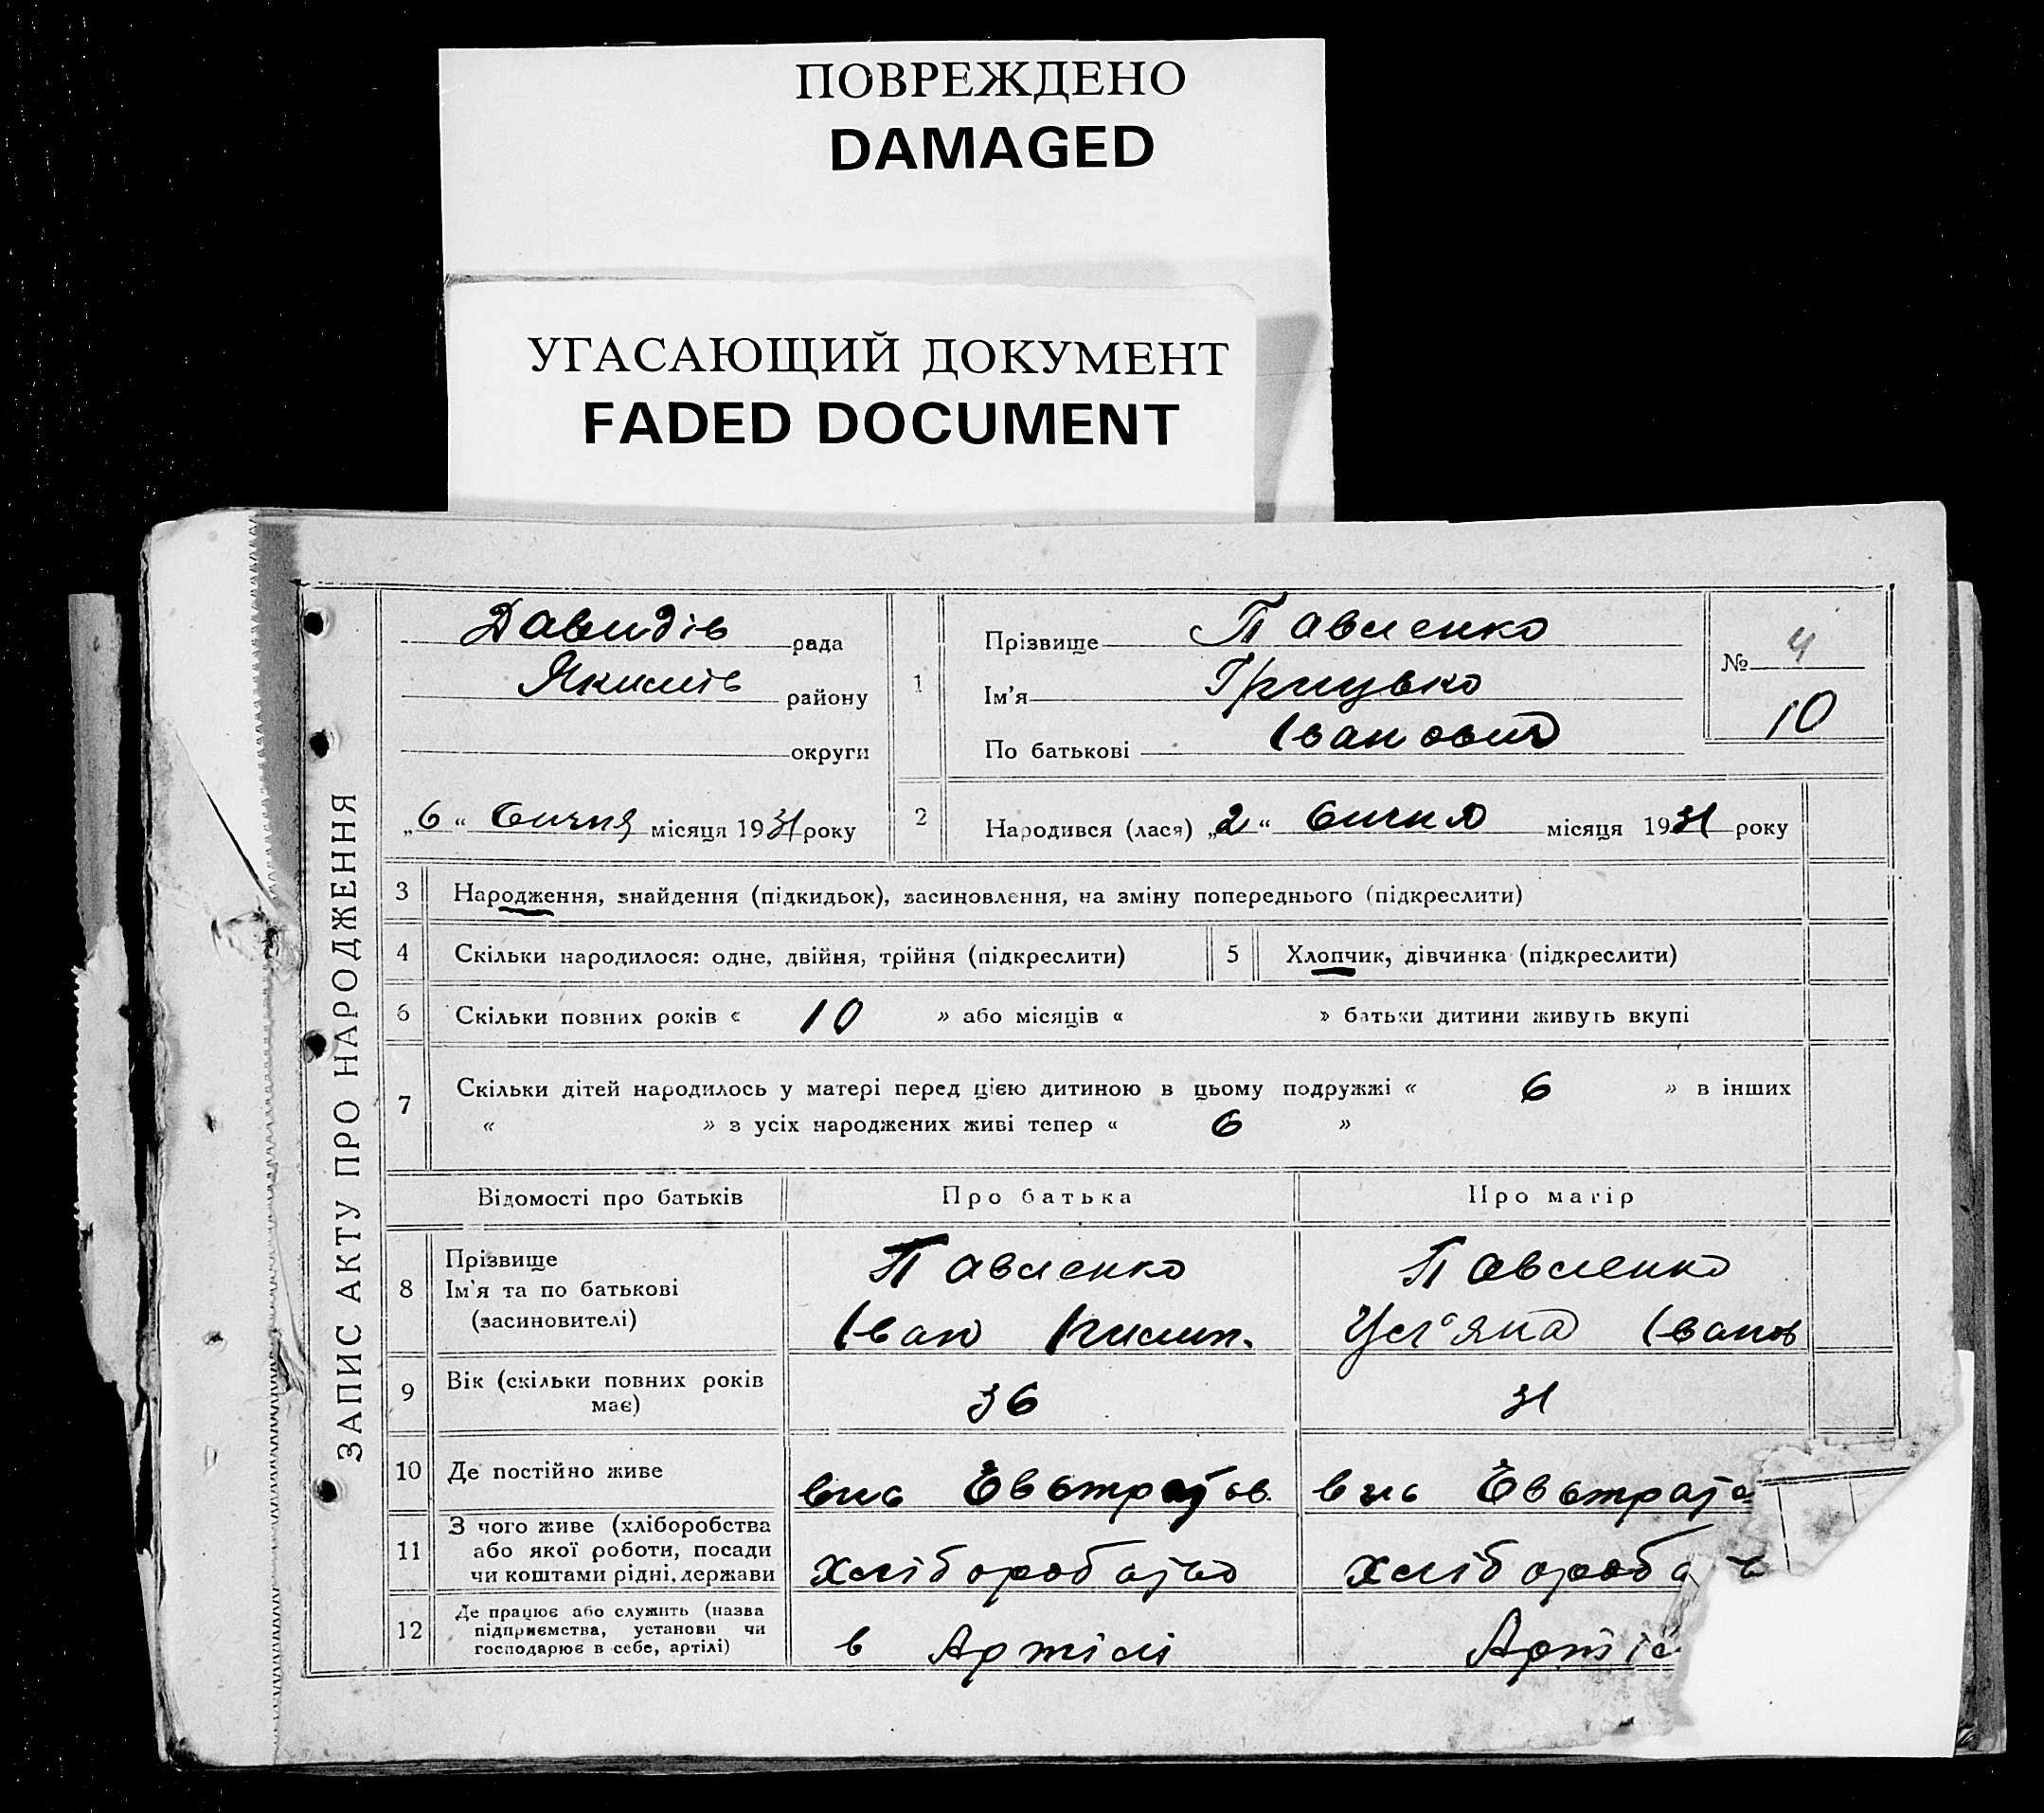 ПОВРЕЖДЕНО
DAMAGED
УГАСАЮЩИЙ ДОКУМЕНТ
FADED DOCUMENT
ЗАПИС АКТУ ПРО НАРОДЖЕННЯ
Давидів рада
Якимів району
округи
„6“ Січня місяця 1931 року
1
Прізвище Павленко
Ім'я Грицько
По батькові Іванович
№ 4
10
2
Народився (лася) „2“ Січня місяця 1931 року
3 Народження, знайдення (підкидьок), засиновлення, на зміну попереднього (підкреслити)
4 Скільки народилося: одне, двійня, трійня (підкреслити)
5 Хлопчик, дівчинка (підкреслити)
6 Скільки повних років « 10 » або місяців « » батьки дитини живуть вкупі
7 Скільки дітей народилось у матері перед цією дитиною в цьому подружжі « 6 » в інших
« » з усіх народжених живі тепер « 6 »
Відомості про батьків Про батька Про матір
8 Прізвище
Ім'я та по батькові
(засиновителі)
Павленко
Іван
Павленко
Іванов
9 Вік (скільки повних років
має)
36 31
10 Де постійно живе
11 З чого живе (хліборобства
або якої роботи, посади
чи коштами рідні, держави
12 Де працює або служить (назва
підприємства, установи чи
господарює в себе, артілі)
в Артілі